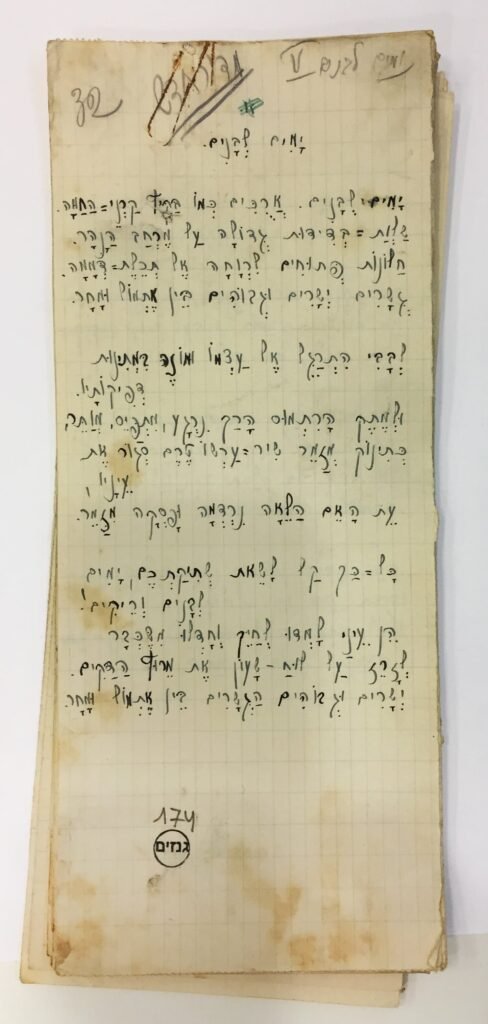 ימים לבנים V
302
יָמִים לְבָנִים.
יָמִים לְבָנִים. אֲרֻכִּים כְּמוֹ בַּקַּיִץ קַרְנֵי=הַחַמָּה.
שַׁלְוַת=בְּדִידוּת גְּדוֹלָה עַל מֶרְחַב הַנָּהָר.
חַלּוֹנוֹת פְּתוּחִים לִרְוָחָה אֶל תְּכֵלֶת=דְּמָמָה.
גְּשָׁרִים יְשָׁרִים וּגְבוֹהִים בֵּין אֶתְמוֹל וּמָחָר.
לְבָבִי הִתְרַגֵּל אֶל עַצְמוֹ וּמוֹנֶה בִּמְתִינוּת
דְּפִיקוֹתָיו.
וּלְמֶתֶק הָרִתְמוּס הָרַךְ נִרְגָּע, מִתְפַּיֵּס, מְוַתֵּר,
כְּתִינוֹק מְזַמֵּר שִׁיר=עַרְשׂוֹ טֶרֶם סְגוֹר אֶת
עֵינָיו,
עֵת הָאֵם הַלֵּאָה נִרְדְּמָה וּפָסְקָה מִזַּמֵּר.
כָּל=כַּךְ קַל לָשֵׂאת שְׁתִיקַתְכֶם, יָמִים
לְבָנִים וְרֵיקִים!
הֵן עֵינַי לָמְדוּ לְחַיֵּךְ וְחָדְלוּ מִכְּבָר
לְזָרֵז עַל לוּחַ-שָׁעוֹן אֶת מֵרוֹץ הַדַּקִּים.
יְשָׁרִים וּגְבוֹהִים הַגְּשָׁרִים בֵּין אֶתְמוֹל וּמָחָר.
174
גנזים